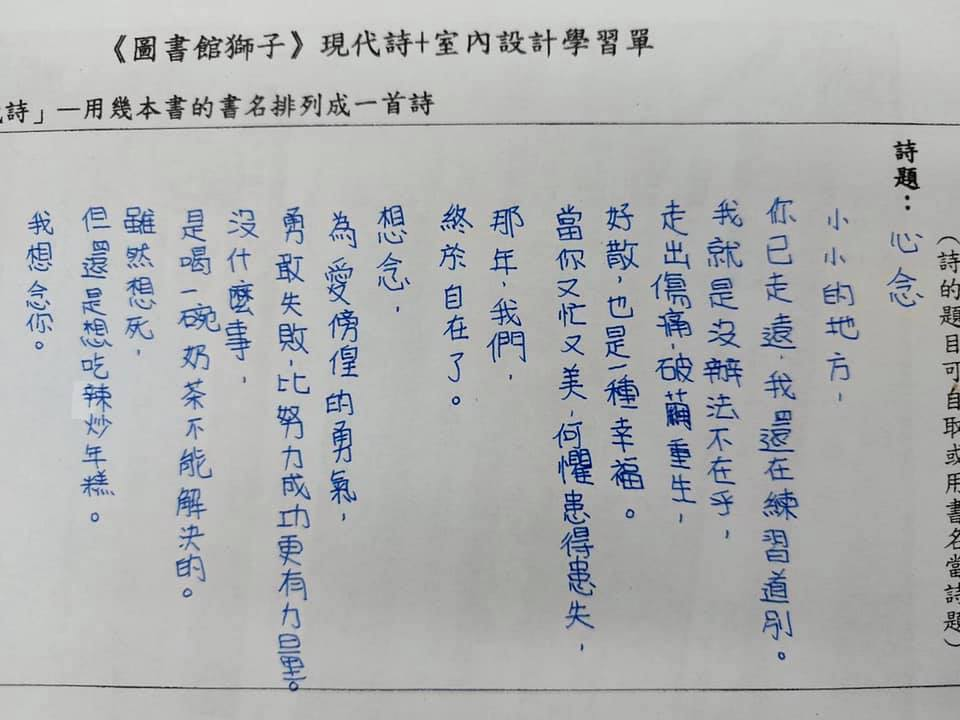 《圖書館獅子》現代詩+室內設計學習單
詩」—用幾本書的書名排列成一首詩
（詩的題目可自取或用書名當詩題）
詩題：心念
小小的地方，
你已走遠，我還在練習道別。
我就是沒辦法不在乎，
走出傷痛，破繭重生，
好散，也是一種幸福。
當你又忙又美，何懼患得患失，
那年，我們，
終於自在了。
想念，
為愛徬徨的勇氣，
勇敢失敗，比努力成功更有力量。
沒什麼事，
是喝一碗奶茶不能解決的。
雖然想死，
但還是想吃辣炒年糕。
我想念你。